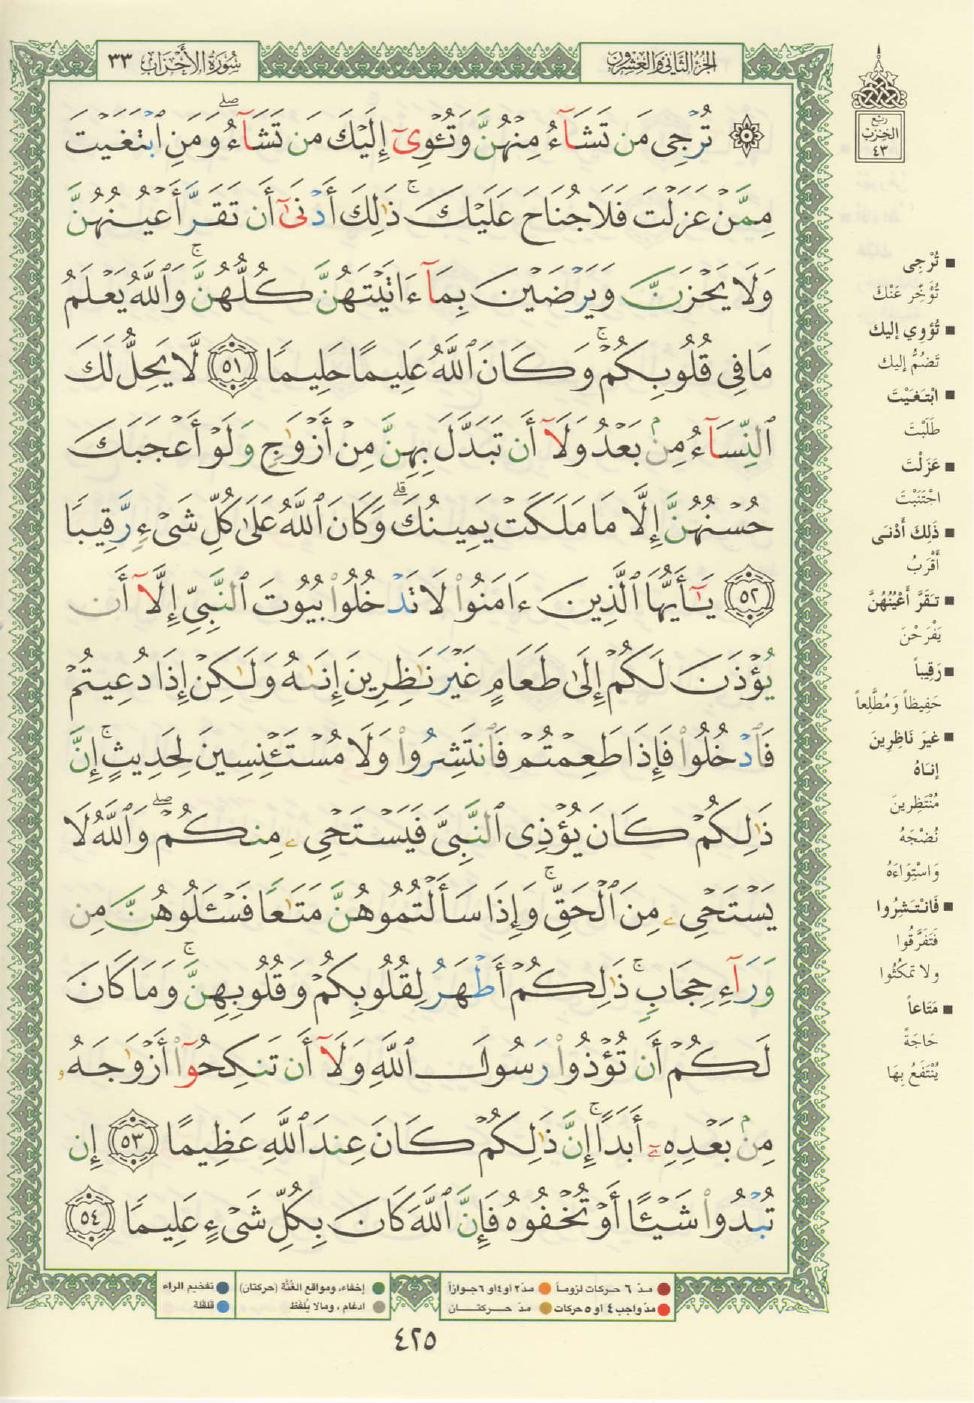 سُورَةُ الأَحْزَابِ ٣٣
الجُزْءُ الثَّانِي وَالعِشْرُونَ
رُبع
الحِزْب
٤٣
۞ تُرْجِى مَن تَشَآءُ مِنْهُنَّ وَتُـْٔوِىٓ إِلَيْكَ مَن تَشَآءُ ۖ وَمَنِ ٱبْتَغَيْتَ
مِمَّنْ عَزَلْتَ فَلَا جُنَاحَ عَلَيْكَ ۚ ذَٰلِكَ أَدْنَىٰٓ أَن تَقَرَّ أَعْيُنُهُنَّ
وَلَا يَحْزَنَّ وَيَرْضَيْنَ بِمَآ ءَاتَيْتَهُنَّ كُلُّهُنَّ ۚ وَٱللَّهُ يَعْلَمُ
مَا فِى قُلُوبِكُمْ ۚ وَكَانَ ٱللَّهُ عَلِيمًا حَلِيمًا ٥١ لَّا يَحِلُّ لَكَ
ٱلنِّسَآءُ مِنۢ بَعْدُ وَلَآ أَن تَبَدَّلَ بِهِنَّ مِنْ أَزْوَٰجٍ وَلَوْ أَعْجَبَكَ
حُسْنُهُنَّ إِلَّا مَا مَلَكَتْ يَمِينُكَ ۗ وَكَانَ ٱللَّهُ عَلَىٰ كُلِّ شَىْءٍ رَّقِيبًا
٥٢ يَـٰٓأَيُّهَا ٱلَّذِينَ ءَامَنُوا۟ لَا تَدْخُلُوا۟ بُيُوتَ ٱلنَّبِىِّ إِلَّآ أَن
يُؤْذَنَ لَكُمْ إِلَىٰ طَعَامٍ غَيْرَ نَـٰظِرِينَ إِنَىٰهُ وَلَـٰكِنْ إِذَا دُعِيتُمْ
فَٱدْخُلُوا۟ فَإِذَا طَعِمْتُمْ فَٱنتَشِرُوا۟ وَلَا مُسْتَـْٔنِسِينَ لِحَدِيثٍ ۚ إِنَّ
ذَٰلِكُمْ كَانَ يُؤْذِى ٱلنَّبِىَّ فَيَسْتَحْىِۦ مِنكُمْ ۖ وَٱللَّهُ لَا
يَسْتَحْىِۦ مِنَ ٱلْحَقِّ ۚ وَإِذَا سَأَلْتُمُوهُنَّ مَتَـٰعًا فَسْـَٔلُوهُنَّ مِن
وَرَآءِ حِجَابٍ ۚ ذَٰلِكُمْ أَطْهَرُ لِقُلُوبِكُمْ وَقُلُوبِهِنَّ ۚ وَمَا كَانَ
لَكُمْ أَن تُؤْذُوا۟ رَسُولَ ٱللَّهِ وَلَآ أَن تَنكِحُوٓا۟ أَزْوَٰجَهُۥ
مِنۢ بَعْدِهِۦٓ أَبَدًا ۚ إِنَّ ذَٰلِكُمْ كَانَ عِندَ ٱللَّهِ عَظِيمًا ٥٣ إِن
تُبْدُوا۟ شَيْـًٔا أَوْ تُخْفُوهُ فَإِنَّ ٱللَّهَ كَانَ بِكُلِّ شَىْءٍ عَلِيمًا ٥٤
■ تُرْجِي
تُؤَخِّر عَنْكَ
■ تُؤْوِي إليك
تَضُمُّ إليك
■ ابْتَغَيْتَ
طَلَبْتَ
■ عَزَلْتَ
اجْتَنَبْتَ
■ ذَلِكَ أَدْنَى
أَقْرَبُ
■ تَقَرَّ أَعْيُنُهُنَّ
يَفْرَحْنَ
■ رَقِيباً
حَفِيظاً وَمُطَّلِعاً
■ غيرَ نَاظِرِينَ
إنَاهُ
مُنْتَظِرِينَ
نُضْجَهُ
وَاسْتِوَاءَهُ
■ فَانْتَشِرُوا
فَتَفَرَّقُوا
ولا تمكُثُوا
■ مَتَاعاً
حَاجَةً
يُنْتَفَعُ بِهَا
مدّ ٦ حركات لزوماً
مدّ ٢ أو ٤ أو ٦ جوازاً
إخفاء، ومواقع الغُنَّة (حركتان)
تفخيم الراء
مدّ واجب ٤ أو ٥ حركات
مدّ حركتان
ادغام، ومالا يُلفظ
قلقلة
٤٢٥